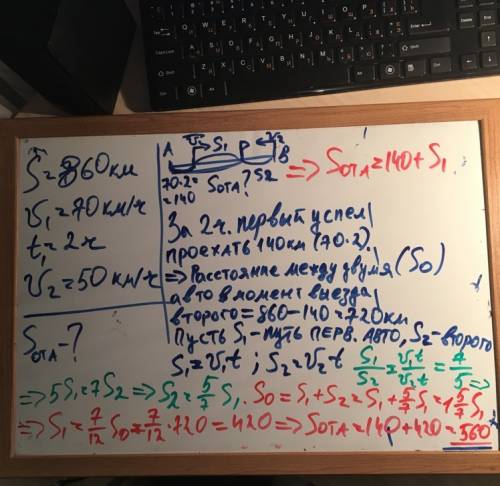 S=860км
V₁=70км/ч
t₁=2ч
V₂=50 км/ч
Sотл-?
A V₁ S₁ P V₂ B
70·2= Sотл? S2
=140
=> Sотл=140+S₁
За 2ч. первый успел
проехать 140км (70·2).
=> Расстояние между двумя (S₀)
авто в момент выезда
второго=860-140=720км
Пусть S₁-путь перв. авто, S₂-второго
S₁=V₁t ; S₂=V₂t S₁/S₂=V₁t/V₂t=7/5 =>
=>5S₁=7S₂ => S₂=5/7 S₁. S₀=S₁+S₂=S₁+5/7S₁=1 5/7 S₁
=> S₁=7/12 S₀=7/12·720=420 => Sотл=140+420=560